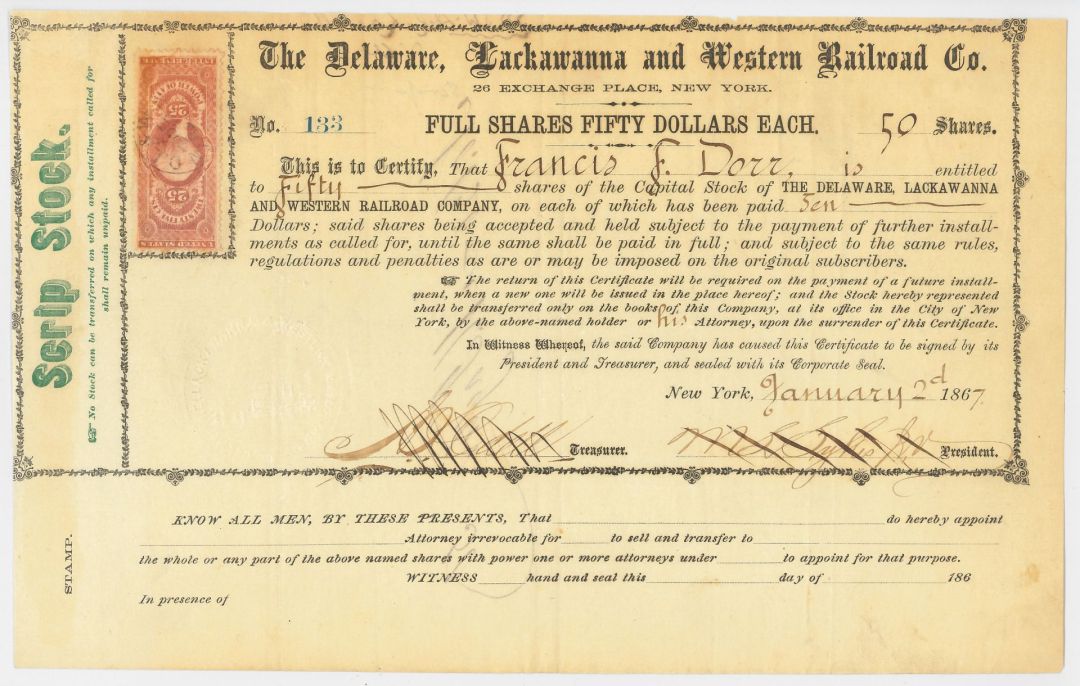 The Delaware, Lackawanna and Western Railroad Co.
26 EXCHANGE PLACE, NEW YORK.
No. 133 FULL SHARES FIFTY DOLLARS EACH. 50 Shares.
This is to Certify, That Francis F. Dorr, is entitled
to Fifty shares of the Capital Stock of THE DELAWARE, LACKAWANNA
AND WESTERN RAILROAD COMPANY, on each of which has been paid Ten
Dollars; said shares being accepted and held subject to the payment of further install-
ments as called for, until the same shall be paid in full; and subject to the same rules,
regulations and penalties as are or may be imposed on the original subscribers.
☞ The return of this Certificate will be required on the payment of a future install-
ment, when a new one will be issued in the place hereof; and the Stock hereby represented
shall be transferred only on the books of this Company, at its office in the City of New
York, by the above-named holder or his Attorney, upon the surrender of this Certificate.
In Witness Whereof, the said Company has caused this Certificate to be signed by its
President and Treasurer, and sealed with its Corporate Seal.
New York, January 2d 1867
Treasurer. President.
Scrip Stock.
☞ No Stock can be transferred on which any installment called for
shall remain unpaid.
25 25
UNITED STATES
STAMP.
KNOW ALL MEN, BY THESE PRESENTS, That do hereby appoint
Attorney irrevocable for to sell and transfer to
the whole or any part of the above named shares with power one or more attorneys under to appoint for that purpose.
WITNESS hand and seal this day of 186
In presence of